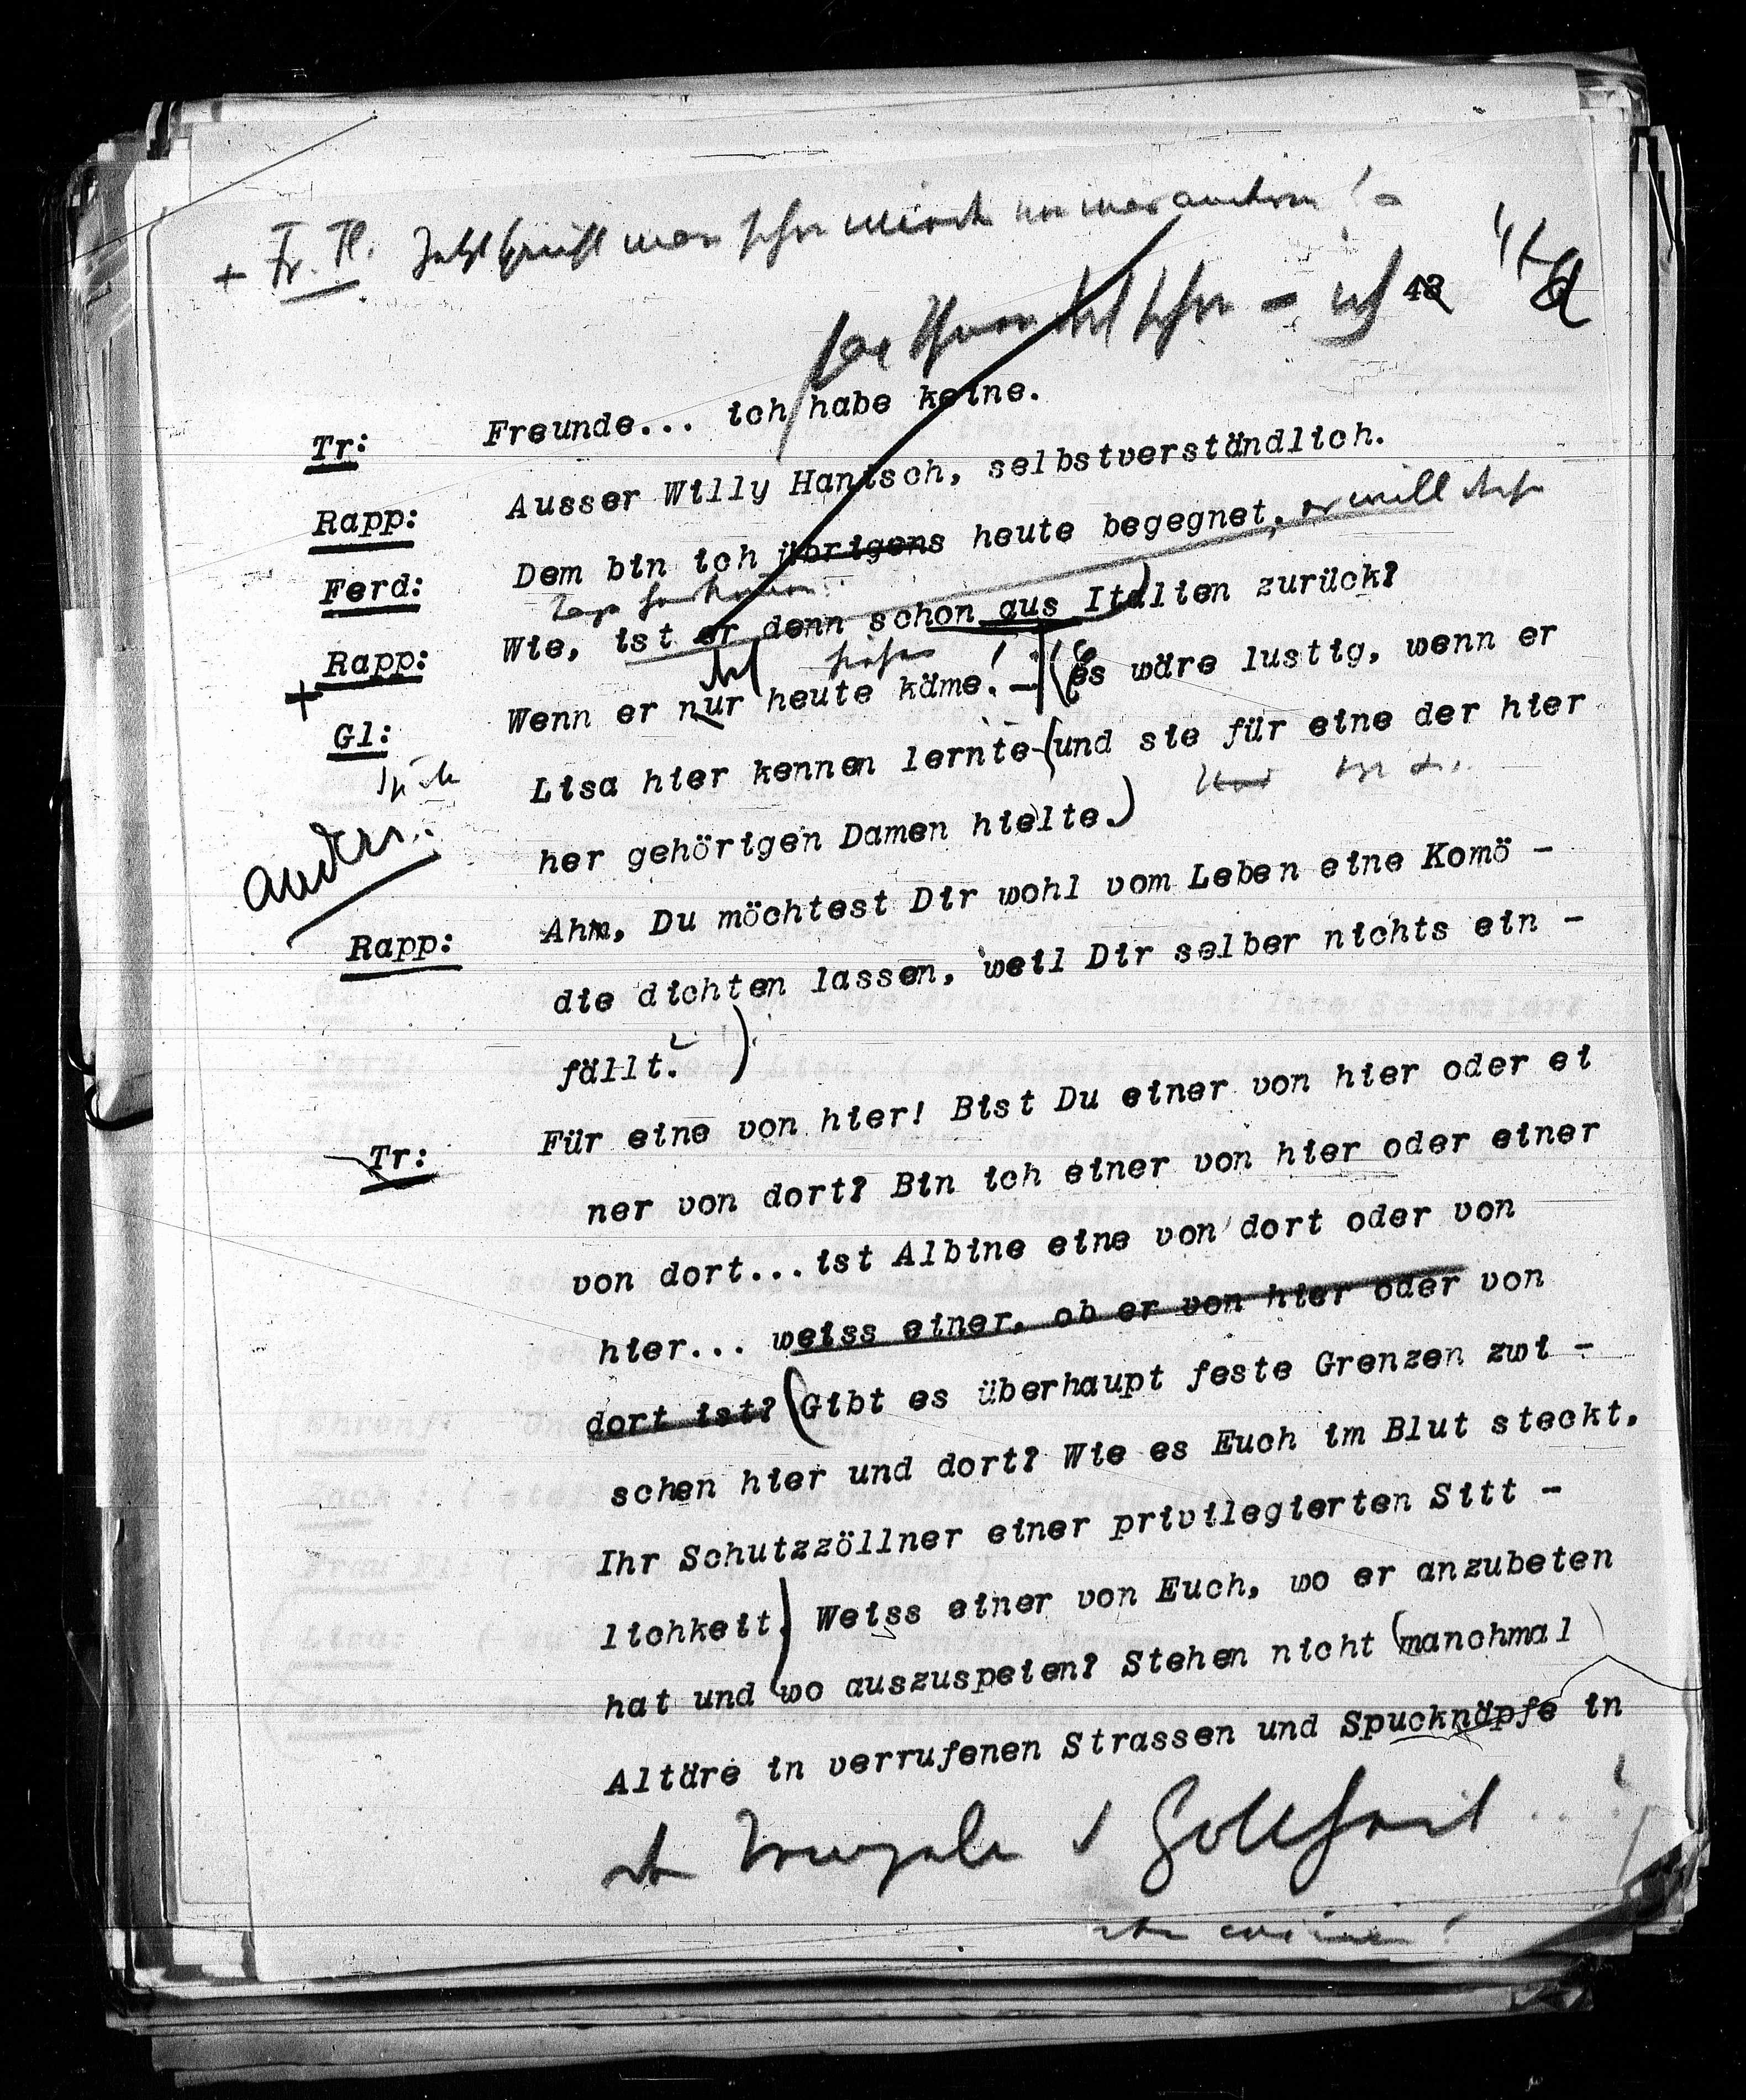 + Fr. Fl.
Tr: Freunde... ich habe keine.
Rapp: Ausser Willy Hantsch, selbstverständlich.
Ferd: Dem bin ich übrigens heute begegnet. er will
Rapp: Wie, ist er denn schon aus Italien zurück?
Gl: Wenn er nur heute käme! - es wäre lustig, wenn er
Lisa hier kennen lernte (und sie für eine der hier
her gehörigen Damen hielte.)
anders
Rapp: Ahm, Du möchtest Dir wohl vom Leben eine Komö -
die dichten lassen, weil Dir selber nichts ein -
fällt.)
Tr: Für eine von hier! Bist Du einer von hier oder ei
ner von dort? Bin ich einer von hier oder einer
von dort...ist Albine eine von dort oder von
hier... weiss einer, ob er von hier oder von
dort ist? (Gibt es überhaupt feste Grenzen zwi -
schen hier und dort? Wie es Euch im Blut steckt,
Ihr Schutzzöllner einer privilegierten Sitt -
lichkeit) Weiss einer von Euch, wo er anzubeten
hat und wo auszuspeien? Stehen nicht (manchmal)
Altäre in verrufenen Strassen und Spucknäpfe in